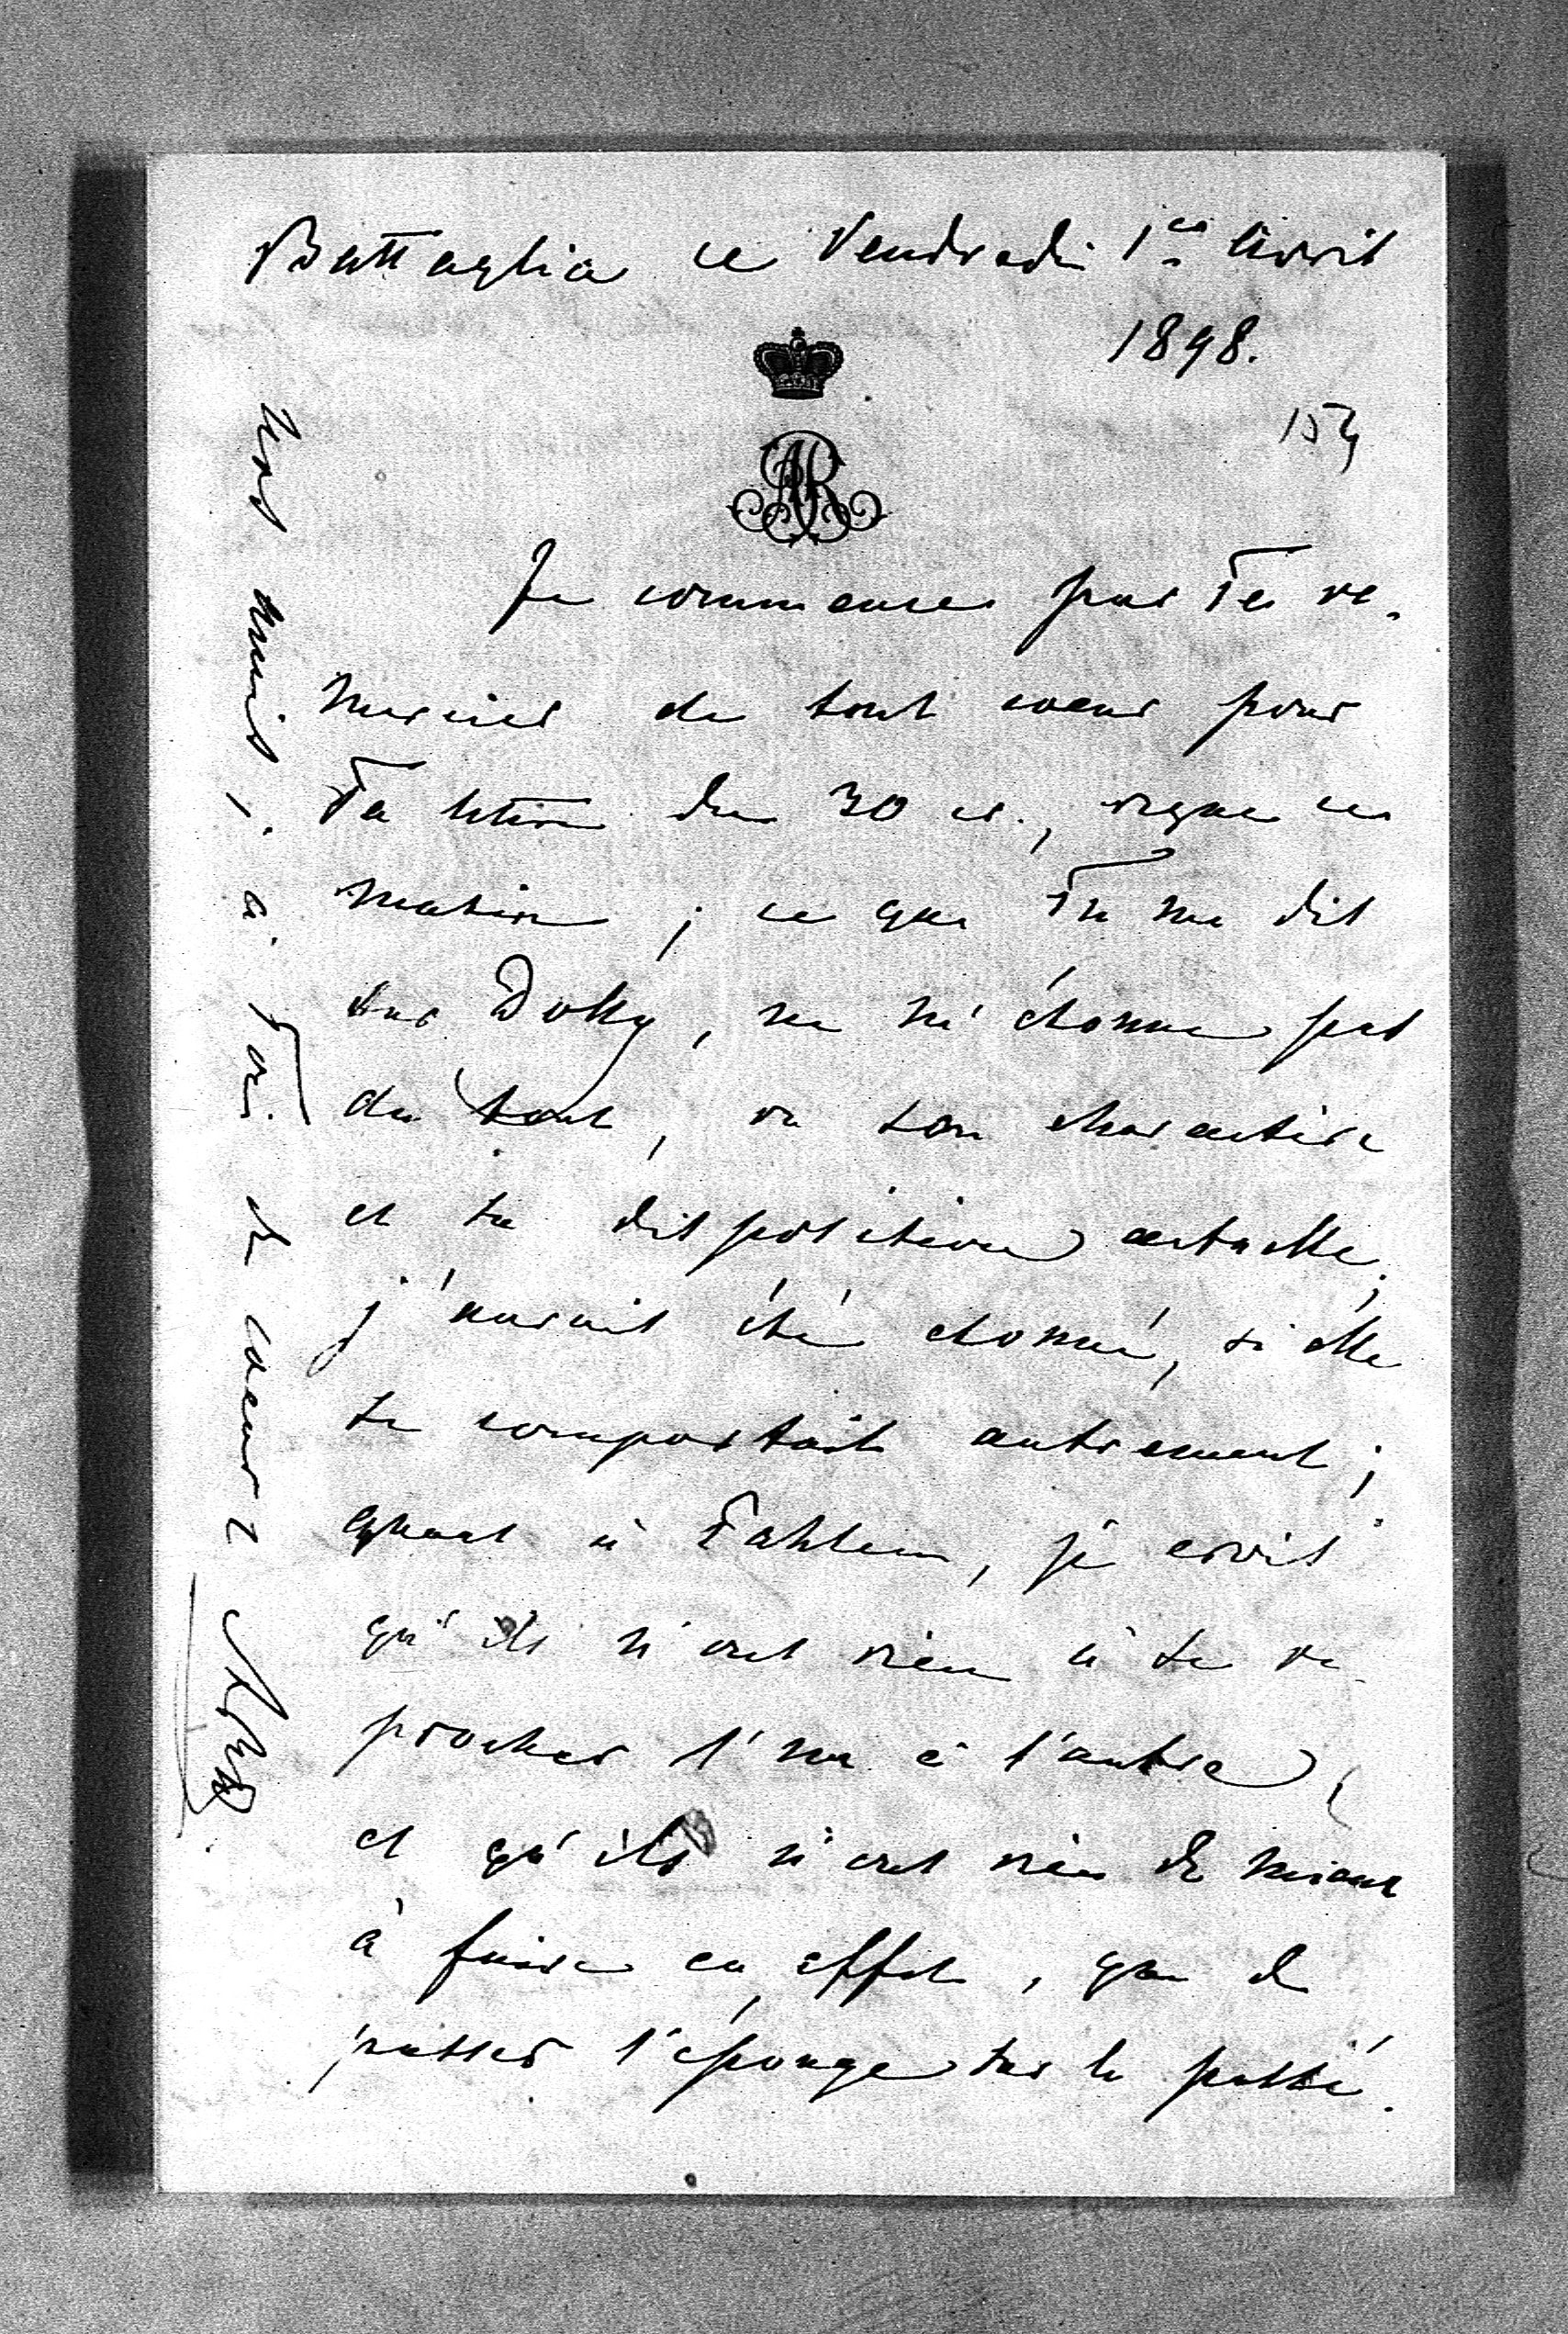 Battaglia ce Vendredi 1er Avril
1898.
154
AR
Je commence par Te re-
mercier de tout coeur pour
Ta lettre du 30 cr., reçue ce
matin ; ce que Tu me dis
sur Dolly, ne m'étonne pas
du tout, vu son charactère
et sa disposition actuelle;
j'aurais été étonné, si elle
se comportait autrement ;
quant à Fahlen, je crois
qu'ils n'ont rien à se re-
procher l'un à l'autre,
et qu'ils n'ont rien de mieux
à faire en effet, que de
passer l'éponge sur le passé.
amis, à Toi de coeur